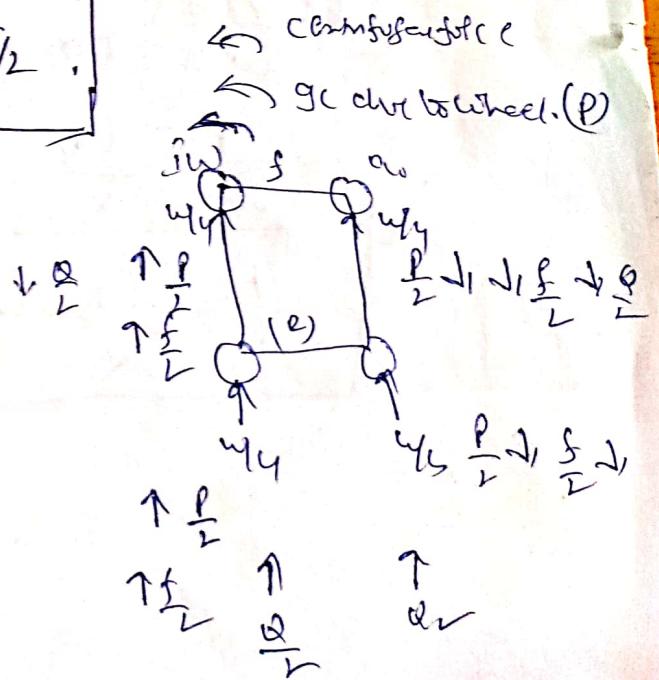 /2 .
← centrifugal force
← gc due to wheel. (P)
iw f ow
w/4 w/4
↓ Q/2 ↑ P/2 P/2 ↓, ↓, f/2 ↓ Q/2
↑ f/2 (R)
w/4 w/4 P/2 ↓, f/2 ↓,
↑ P/2
↑ f/2 ↑ Q/2 ↑ Q/2